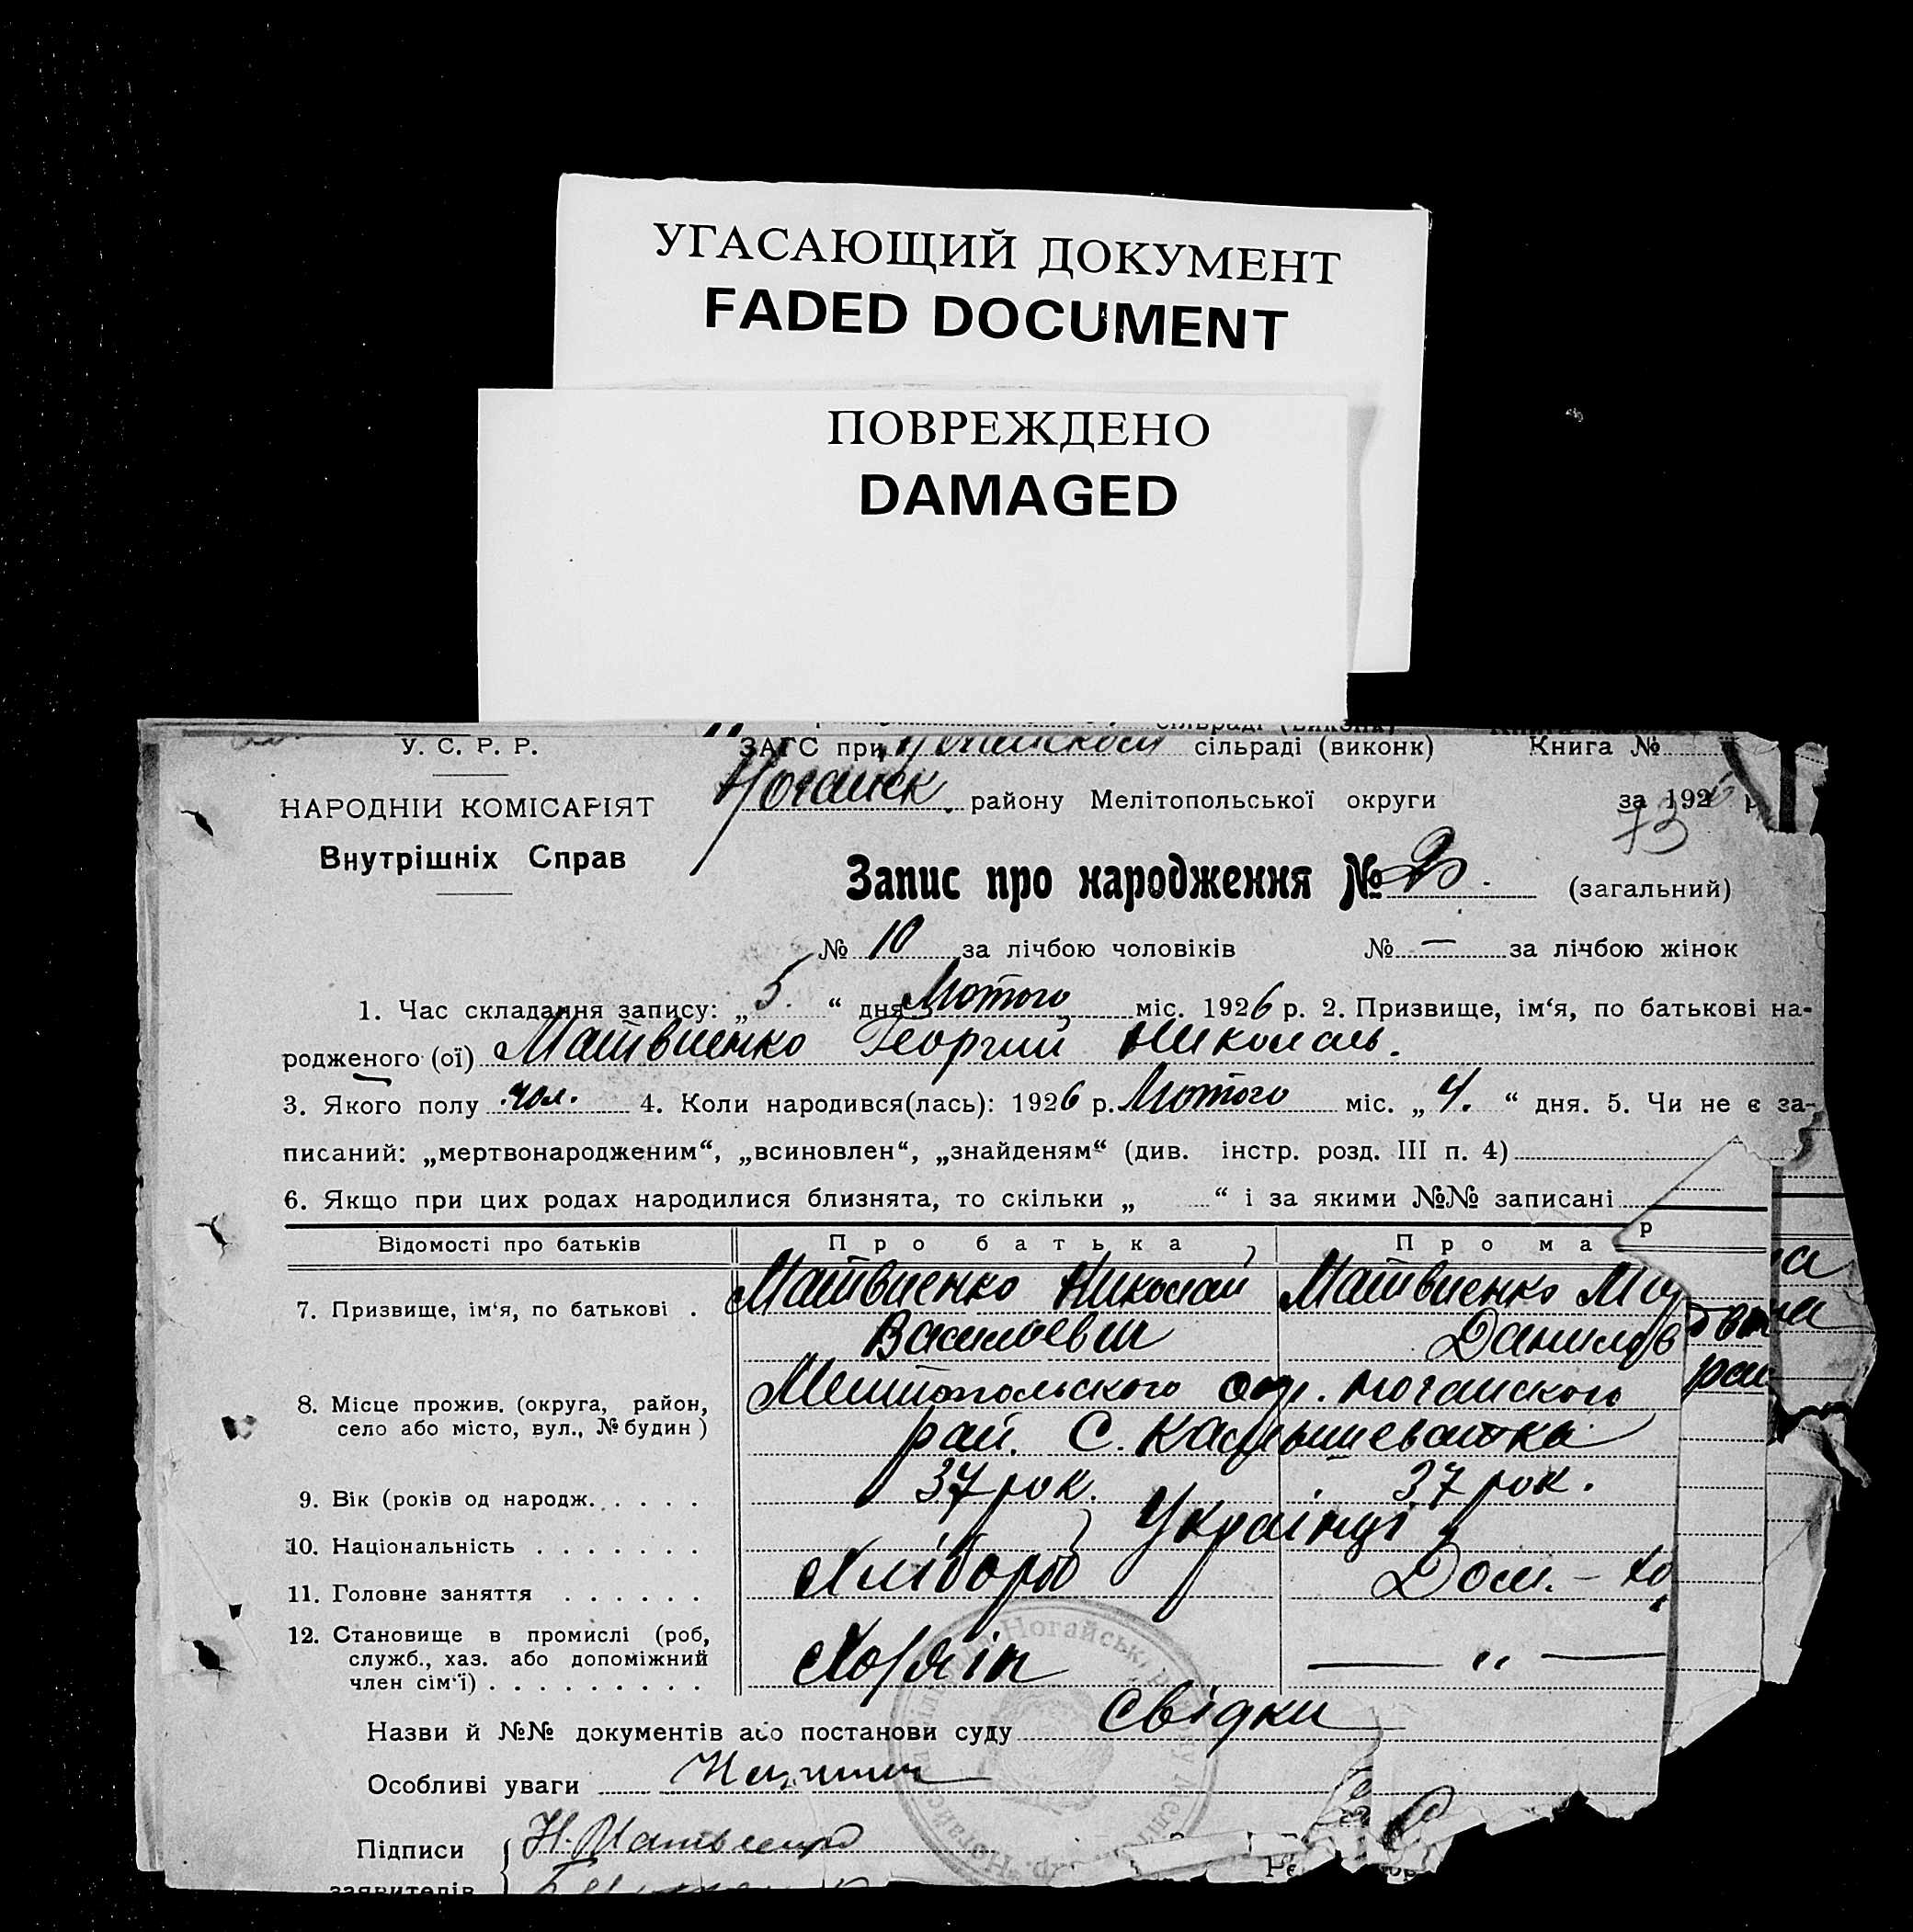 УГАСАЮЩИЙ ДОКУМЕНТ
FADED DOCUMENT
ПОВРЕЖДЕНО
DAMAGED
сільраді (виконк)
У. С. Р. Р.
ЗАГС при сільраді (виконк) Книга №
НАРОДНІЙ КОМІСАРІЯТ
Ногайск району Мелітопольської округи за 1926 р
73
Внутрішніх Справ
Запис про народження № (загальний)
№ 10 за лічбою чоловіків № — за лічбою жінок
1. Час складання запису: „ 5. “ дня Лютого міс. 1926 р. 2. Призвище, ім‘я, по батькові на-
родженого (ої) Матвиенко Георгий Николаев.
3. Якого полу чол. 4. Коли народився(лась): 1926 р. Лютого міс. „ 4. “ дня. 5. Чи не є за-
писаний: „мертвонародженим“, „всиновлен“, „знайденям“ (див. інстр. розд. III п. 4)
6. Якщо при цих родах народилися близнята, то скільки „ “ і за якими №№ записані
Відомості про батьків Про батька Про ма
7. Призвище, ім‘я, по батькові . Матвиенко Николай Матвиенко
Васильевич Данилов
8. Місце прожив. (округа, район, Мелитопольского окр. Ногайского
село або місто, вул., № будин ) рай. С.
9. Вік (років од народж. . . . . . 37 рок. 37 рок.
10. Національність . . . . . . . Українці
11. Головне заняття . . . . . . Хлібороб Дом. –
12. Становище в промислі (роб,
служб., хаз. або допоміжний Хозяін — „ —
член сім‘ї) . . . . . . . . .
Назви й №№ документів або постанови суду Свідки
Особливі уваги
Підписи Н. Матвиенко
заявителів